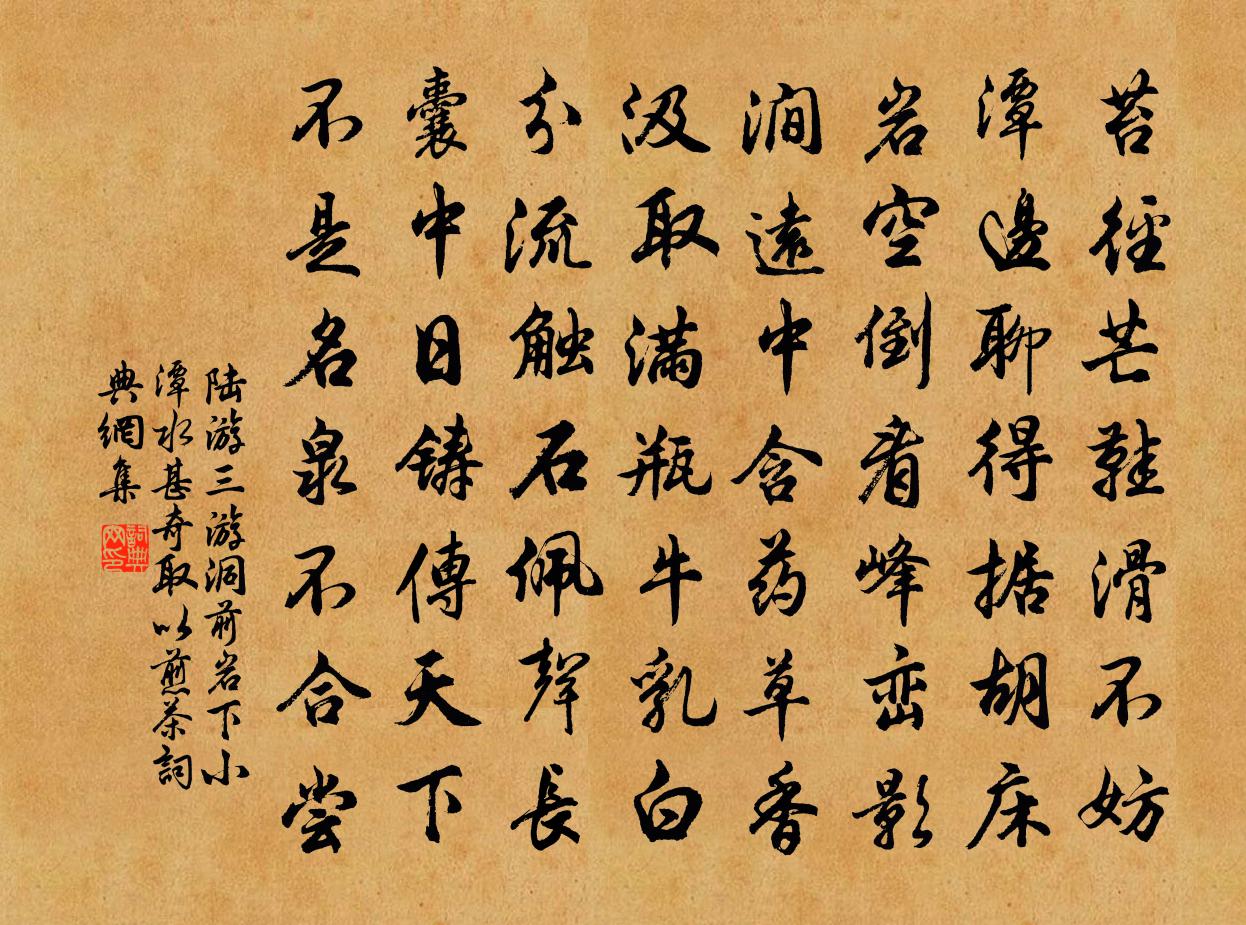 苔徑芒鞋滑不妨
潭邊聊得据胡床
岩空倒看峰巒影
澗遠中含药草香
汲取满瓶牛乳白
分流触石佩聲長
囊中日鑄傳天下
不是名泉不合尝
陆游三游洞前岩下小
潭水甚奇取以煎茶詞
典網集
詞典
网印